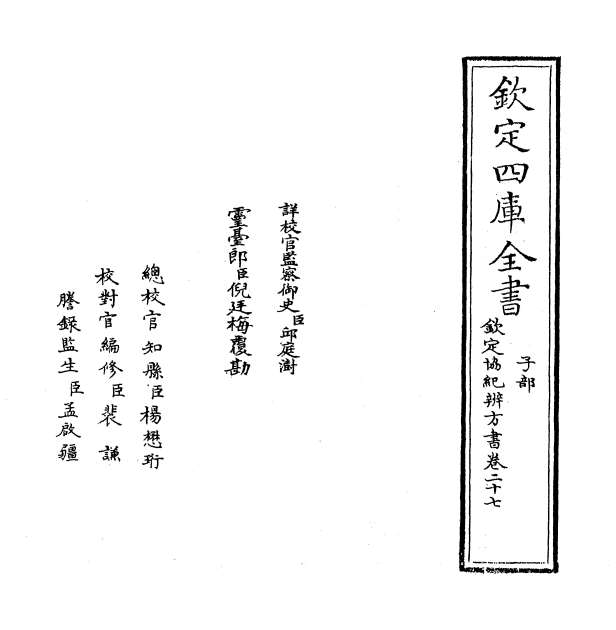 欽定四庫全書
子部
欽定協紀辨方書卷二十七
詳校官監察御史臣邱庭澍
靈臺郎臣倪廷梅覆勘
總校官知縣臣楊懋珩
校對官編修臣裴謙
謄錄監生臣孟啟疆